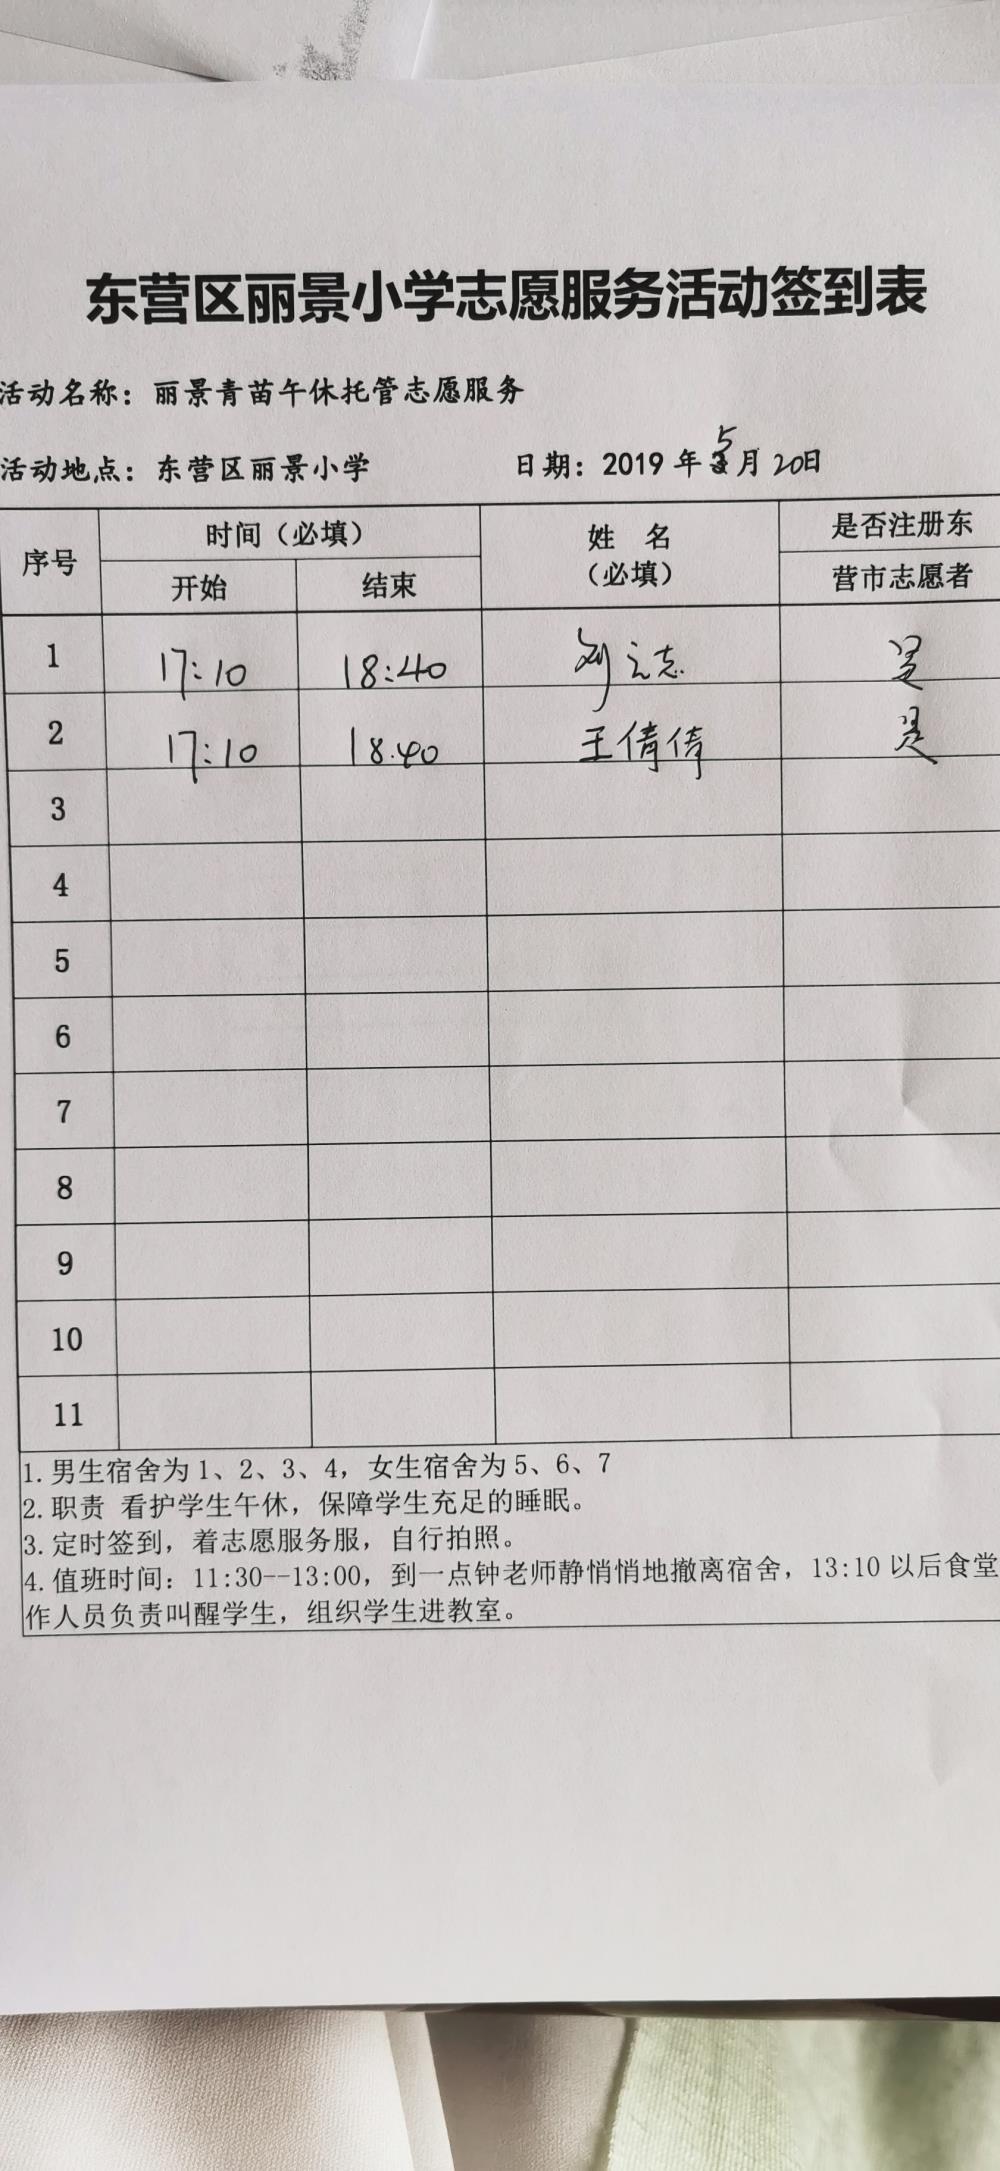 东营区丽景小学志愿服务活动签到表
活动名称：丽景青苗午休托管志愿服务
活动地点：东营区丽景小学 日期：2019年5月20日
序号 时间（必填） 姓 名（必填） 是否注册东营市志愿者
开始 结束
1 17:10 18:40 刘立志 是
2 17:10 18.40 王倩倩 是
3
4
5
6
7
8
9
10
11
1.男生宿舍为1、2、3、4，女生宿舍为5、6、7
2.职责 看护学生午休，保障学生充足的睡眠。
3.定时签到，着志愿服务服，自行拍照。
4.值班时间：11:30--13:00，到一点钟老师静悄悄地撤离宿舍，13:10以后食堂
作人员负责叫醒学生，组织学生进教室。